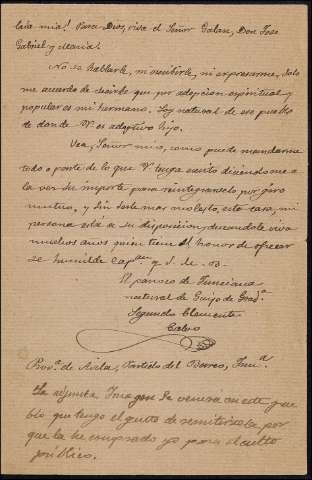 laia mia! Para Dios, viva el Señor Galan, Don José
Gabriel y Maria!
No se hablarle, ni escribirle, ni expresarme, solo
me acuerdo decirle que por adopcion espiritual y
popular es mi hermano. Soy natural de ese pueblo
de donde V. es adoptivo hijo.
Vea, Señor mio, como puede mandarme
todo o parte de lo que V. tenga escrito diciendome a
la vez su importe para reintegrarselo por giro
mutuo, y sin serle mas molesto, esta casa, mi
persona está a su disposicion deseandole viva
muchos años quien tiene el honor de ofrecer
se humilde Cap. q. s. m. b.
El parroco de Junciana
natural de Guijo de Gran.ª
Segundo Clemente
Calvo
Prov.ª de Avila, Partido del Barco, Junc.ª
La adjunta Imagen se venera en este pue
blo que tengo el gusto de remitirsela por
que la he comprado yo para el culto
publico.